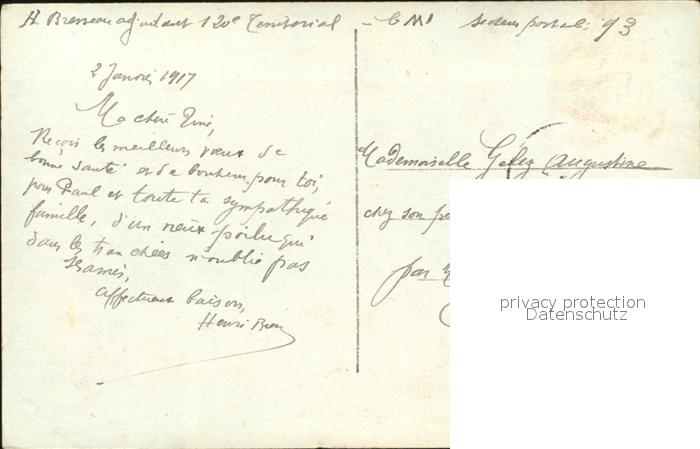 H. Bresseau adjudant 120e Territorial – C M1 secteur postal: 93
2 Janvier 1917
Ma chère
Reçois les meilleurs vœux de
bonne santé et de bonheur pour toi,
pour Paul et toute ta sympathique
famille, d'un vieux poilu qui
dans les tranchées n'oublie pas
ses amis,
affectueux baisers,
Henri
Mademoiselle Augustine
chez son
par
privacy protection
Datenschutz